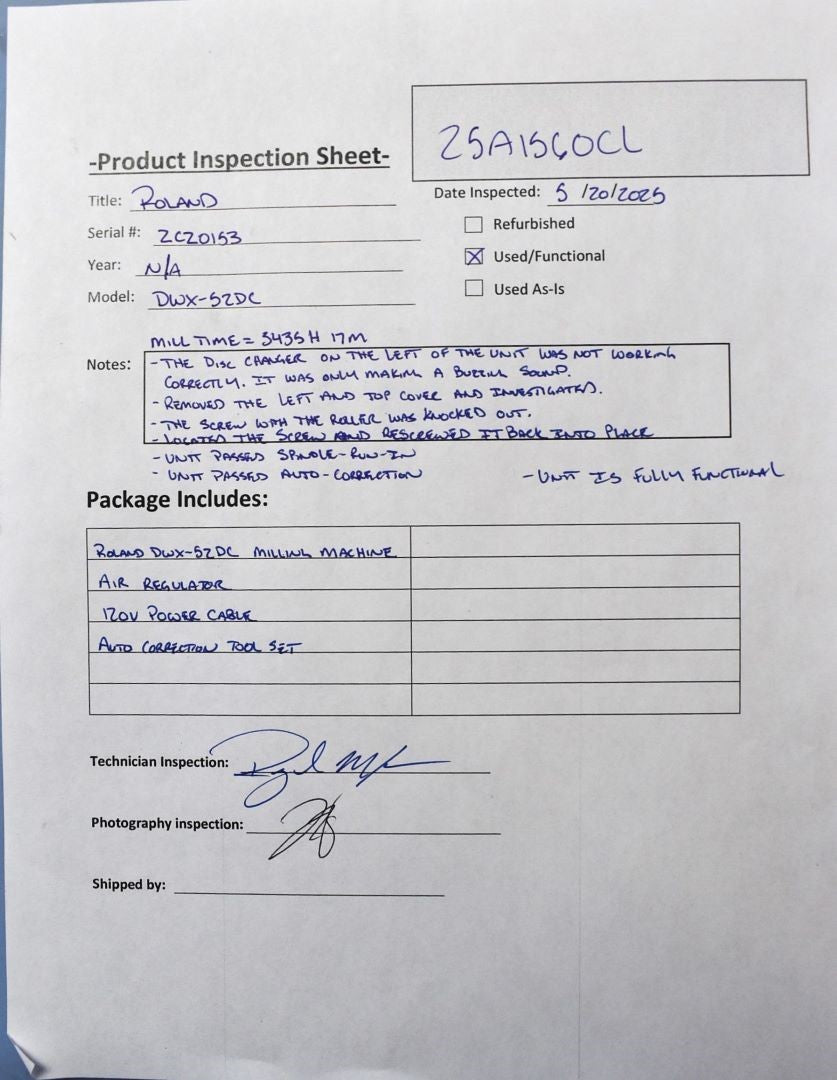 25A1560CL
-Product Inspection Sheet-
Title: ROLAND
Date Inspected: 5/20/2025
Serial #: ZCZ0153
Refurbished
Year: N/A
Used/Functional
Model: DWX-52DC
Used As-Is
MILL TIME = 3435H 17M
Notes:
- THE DISC CHANGER ON THE LEFT OF THE UNIT WAS NOT WORKING
CORRECTLY. IT WAS ONLY MAKING A SOUND.
- REMOVED THE LEFT AND TOP COVER AND INVESTIGATED.
- THE SCREW WITH THE ROLLER WAS KNOCKED OUT.
- LOCATED THE SCREW AND RESCREWED IT BACK INTO PLACE
- UNIT PASSED SPINDLE-RUN-IN
- UNIT PASSED AUTO-CORRECTION
- UNIT IS FULLY FUNCTIONAL
Package Includes:
ROLAND DWX-52DC MILLING MACHINE
AIR REGULATOR
120V POWER CABLE
AUTO CORRECTION TOOL SET
Technician Inspection:
Photography inspection:
Shipped by: